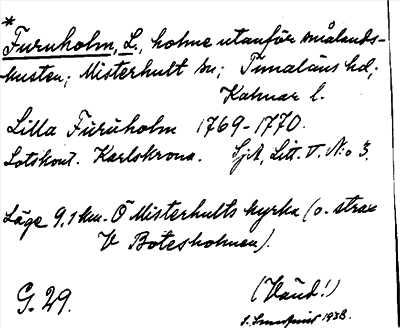 *
Furuholm, L., holme utanför smålands-
kusten; Misterhult sn; Tunaläns hd;
Kalmar l.
Lilla Furuholm 1769-1770.
Lotskont. Karlskrona. SjA, Litt. V. No 3.
Läge 9,1 km. Ö Misterhults kyrka (o. strax
V Boteskohmen).
G. 29.
(Vänd!)
1938.